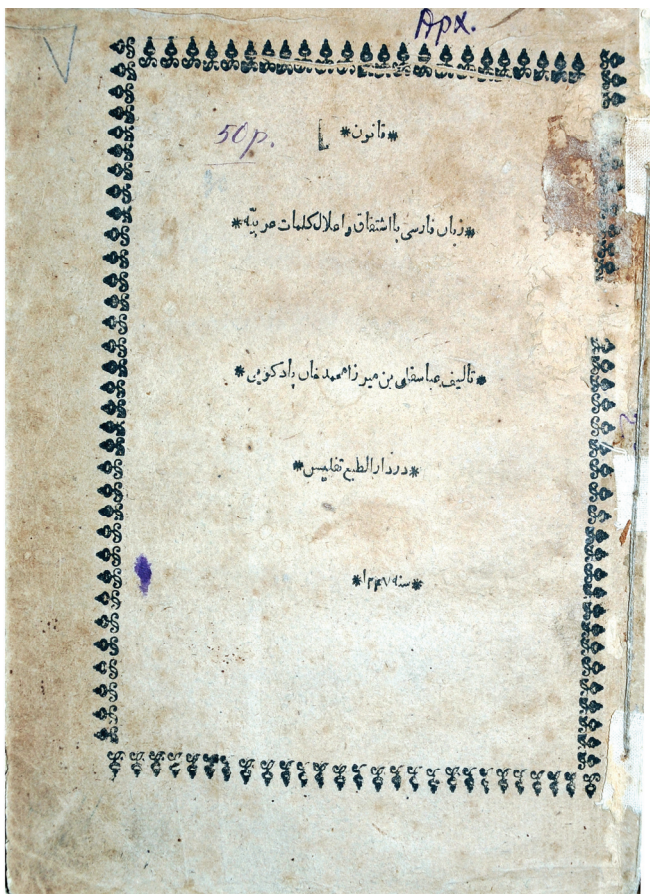 Арх.
50р.
*قانون*
*زبان فارسی با اشتقاق و اعلال کلمات عربیّه*
*تالیف عباسقلی بن میرزا محمد خان بادکوبی*
*در دار الطبع تفلیس*
*سنه ۱۲۴۷*